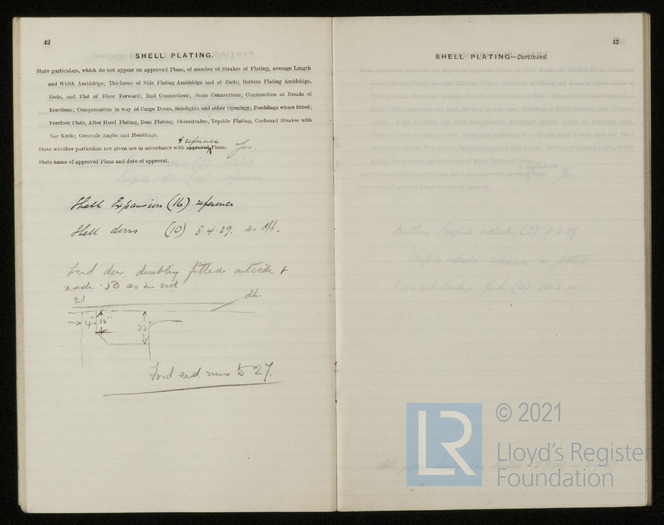 42
SHELL PLATING.
State particulars, which do not appear on approved Plans, of number of Strakes of Plating, average Length
and Width Amidships; Thickness of Side Plating Amidships and at Ends; Bottom Plating Amidships,
Ends, and Flat of Floor Forward; End Connections; Seam Connections; Construction at Breaks of
Erections; Compensation in way of Cargo Doors, Sidelights and other Openings; Doublings where fitted;
Forefoot Plate, After Hood Plating, Boss Plating; Sheerstrake, Topside Plating, Garboard Strakes with
Bar Keels; Generale Angles and Mouldings.
& reference
State whether particulars not given are in accordance with approved Plans. Yes.
State name of approved Plans and date of approval.
Shell Expansion (16) reference
Shell doors (10) 6.4.29. as
Fwd door doubling fitted outside &
made .50 as in red
21
dk
4" 12"
Fwd end runs to 27.
43
SHELL PLATING—Continued.
LR
© 2021
Lloyd's Register
Foundation